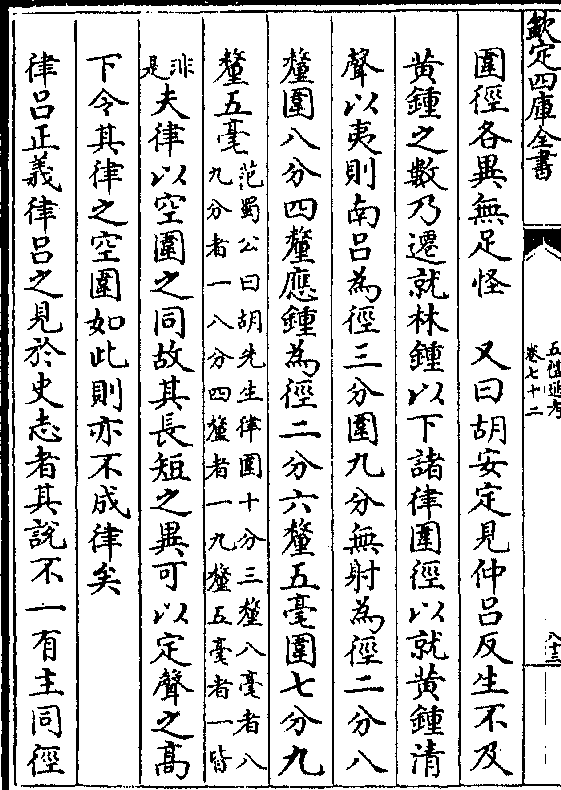 欽定四庫全書
五禮通考
卷七十二
八十三
圍徑各異無足怪　又曰胡安定見仲呂反生不及
黄鍾之數乃遷就林鍾以下諸律圍徑以就黄鍾清
聲以夷則南吕為徑三分圍九分無射為徑二分八
釐圍八分四釐應鍾為徑二分六釐五毫圍七分九
釐五毫范蜀公曰胡先生律圍十分三釐八毫者八
九分者一八分四釐者一九釐五毫者一皆
非
是夫律以空圍之同故其長短之異可以定聲之髙
下令其律之空圍如此則亦不成律矣
律吕正義律吕之見於史志者其説不一有主同徑